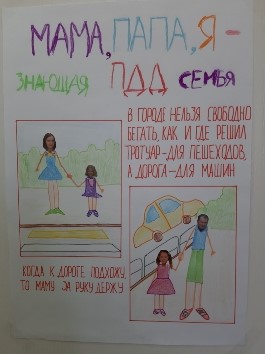 МАМА, ПАПА, Я -
ЗНАЮЩАЯ ПДД СЕМЬЯ
В ГОРОДЕ НЕЛЬЗЯ СВОБОДНО
БЕГАТЬ, КАК И ГДЕ РЕШИЛ
ТРОТУАР-ДЛЯ ПЕШЕХОДОВ,
А ДОРОГА-ДЛЯ МАШИН
КОГДА К ДОРОГЕ ПОДХОЖУ,
ТО МАМУ ЗА РУКУ ДЕРЖУ